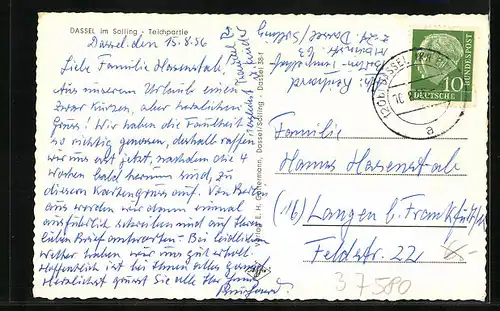 DASSEL im Solling - Teichpartie
Dassel, den 15.8.56
Liebe Familie Hasenstab,
Aus unserem Urlaub einen
zwar kurzen, aber herzlichen
Gruss! Wir haben die Faulheit
so richtig genossen, deshalb raffen
wir uns erst jetzt, nachdem die 4
Wochen bald herum sind, zu
diesem Kartengruss auf. Von Berlin
aus werden wir dann einmal
ausführlich schreiben und auf Ihren
lieben Brief antworten. - Bei leidlichem
Wetter haben wir uns gut erholt.
Hoffentlich ist bei Ihnen alles gesund.
Herzlichst grüsst Sie alle Ihr
Dassel/Solling - Dassel 38-1
z. Zt. Dassel/Solling
DASSEL
a
10
DEUTSCHE
BUNDESPOST
Familie
Hanns Hasenstab
(16) Langen b. Frankfurt/M
Feldstr. 22
37580